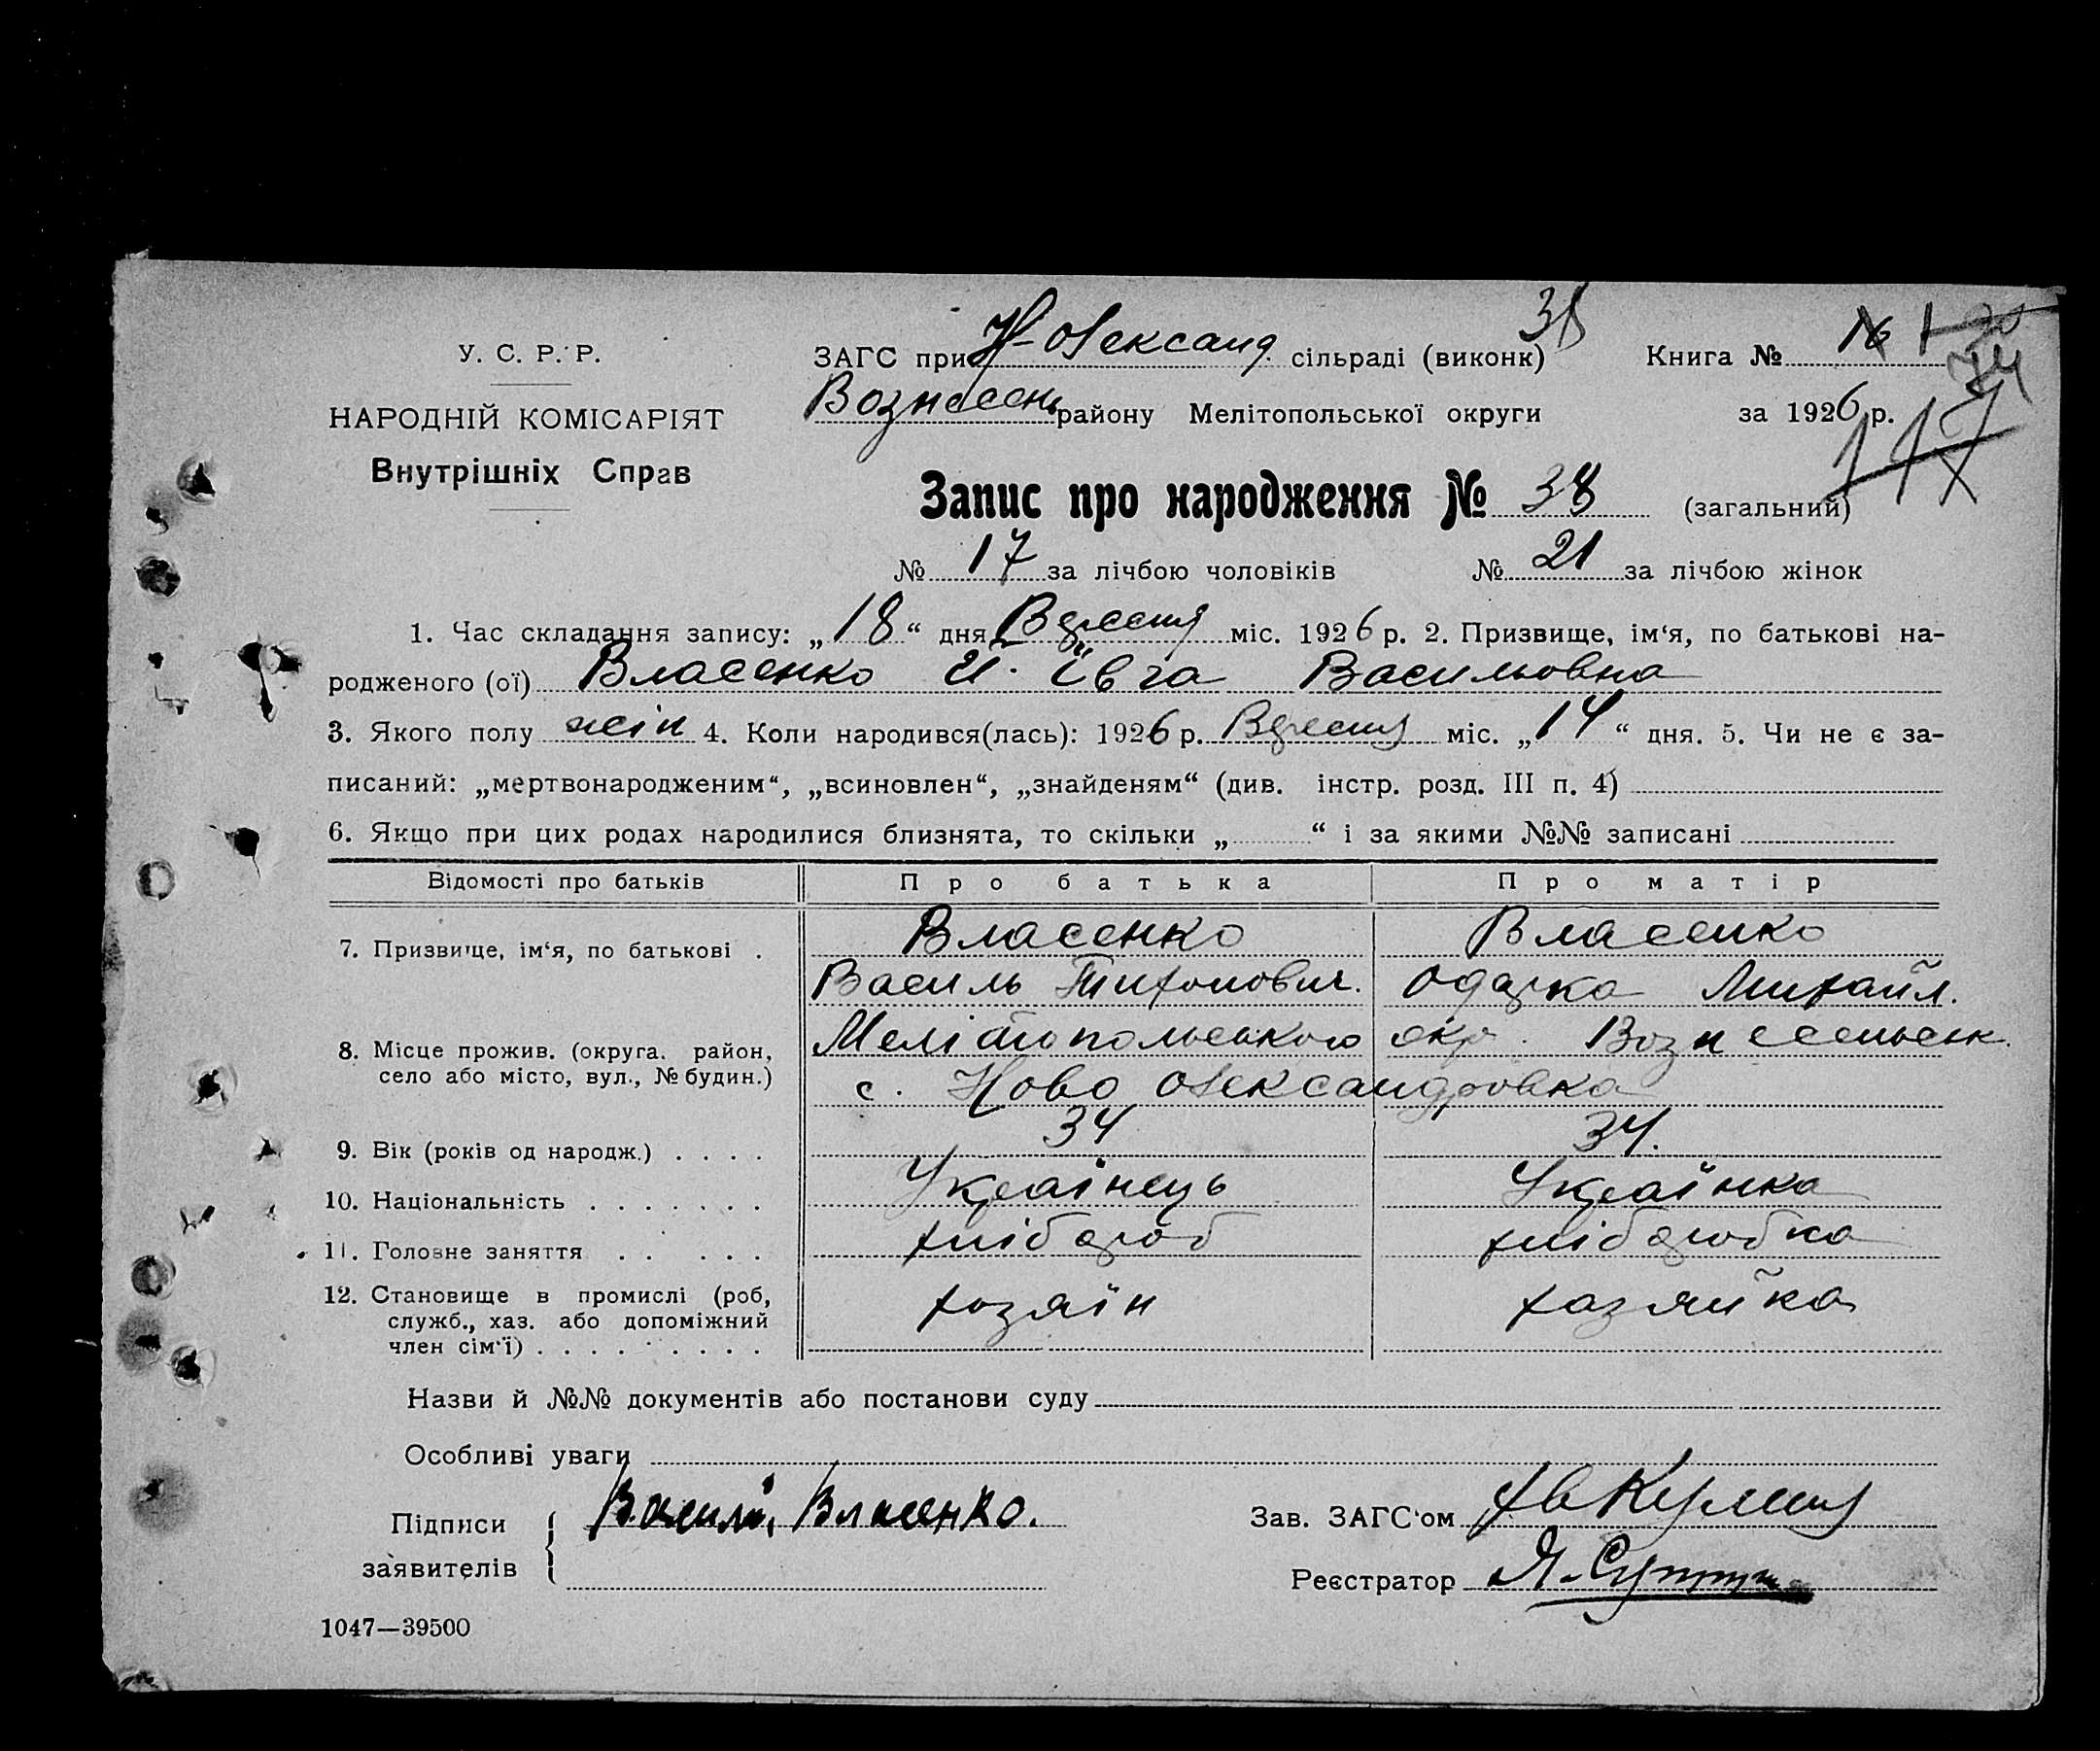 38
У. С. Р. Р.
ЗАГС при Н-Олександ. сільраді (виконк) Книга № 1
74
Вознесенр району Мелітопольської округи за 1926 р.
НАРОДНІЙ КОМІСАРІЯТ
117
Внутрішніх Справ
Запис про народження № 38 (загальний)
№ 17 за лічбою чоловіків № 21 за лічбою жінок
1. Час складання запису: „18“ дня Вересня міс. 1926 р. 2. Призвище, ім‘я, по батькові на-
родженого (ої) Власенко Ївга Васильовна
3. Якого полу жін 4. Коли народився(лась): 1926 р. Вересня міс. „14“ дня. 5. Чи не є за-
писаний: „мертвонародженим“, „всиновлен“, „знайденям“ (див. інстр. розд. III п. 4)
6. Якщо при цих родах народилися близнята, то скільки „ “ і за якими №№ записані
Відомості про батьків Про батька Про матір
7. Призвище, ім‘я, по батькові . Власенко Власенко
Василь Тихонович. Одарка Михайл.
8. Місце прожив. (округа. район, село або місто, вул., № будин.) Мелітопольського окр. Вознесенськ.
с. Ново Олександровка
9. Вік (років од народж.) . . . . 34 34.
10. Національність . . . . . . . Українець Українка
11. Головне заняття . . . . . хлібороб хліборобка
12. Становище в промислі (роб, хозяїн хазяйка
служб., хаз. або допоміжний
член сім‘ї) . . . . . . . . .
Назви й №№ документів або постанови суду
Особливі уваги
Підписи Василь Власенко. Зав. ЗАГС‘ом
заявителів Реєстратор
1047—39500